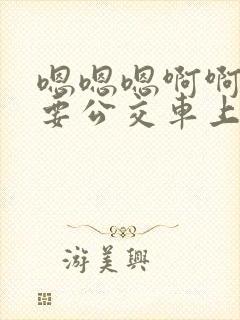 嗯嗯嗯啊啊
要公交車上
游美興